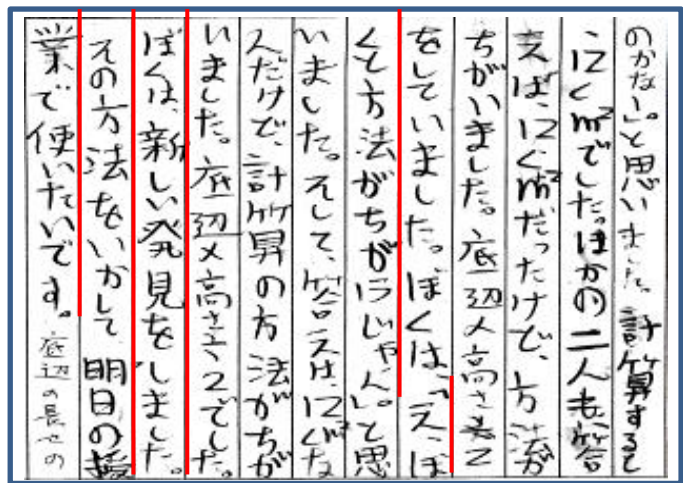 のかな」。と思いました。計算すると
、12c㎡でした。ほかの二人も答
えは、12c㎡だったけど、方法が
ちがいました。底辺×高さ÷2
をしていました。ぼくは、「え、ぼ
くと方法がちがうじゃん」。と思
いました。そして、答えは、12c㎡な
んだけど、計算の方法がちが
いました。底辺×高さ÷2でした。
ぼくは、新しい発見をしました。
その方法をいかして、明日の授
業で使いたいです。底辺の長さの